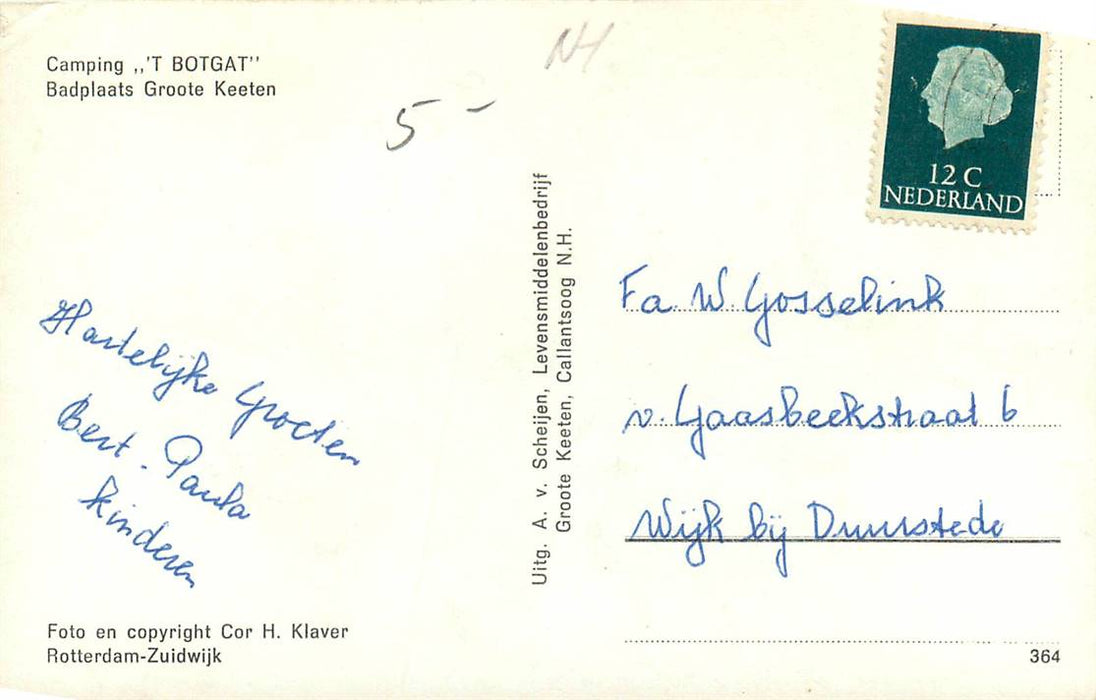 Camping ,,'T BOTGAT''
Badplaats Groote Keeten
NH
5 -
12 C
NEDERLAND
Hartelijke Groeten
Bert. Paula
kinderen
Uitg. A. v. Scheijen, Levensmiddelenbedrijf
Groote Keeten, Callantsoog N.H.
Fa. W. Gosselink
v. Gaasbeekstraat 6
Wijk bij Duurstede
Foto en copyright Cor H. Klaver
Rotterdam-Zuidwijk
364